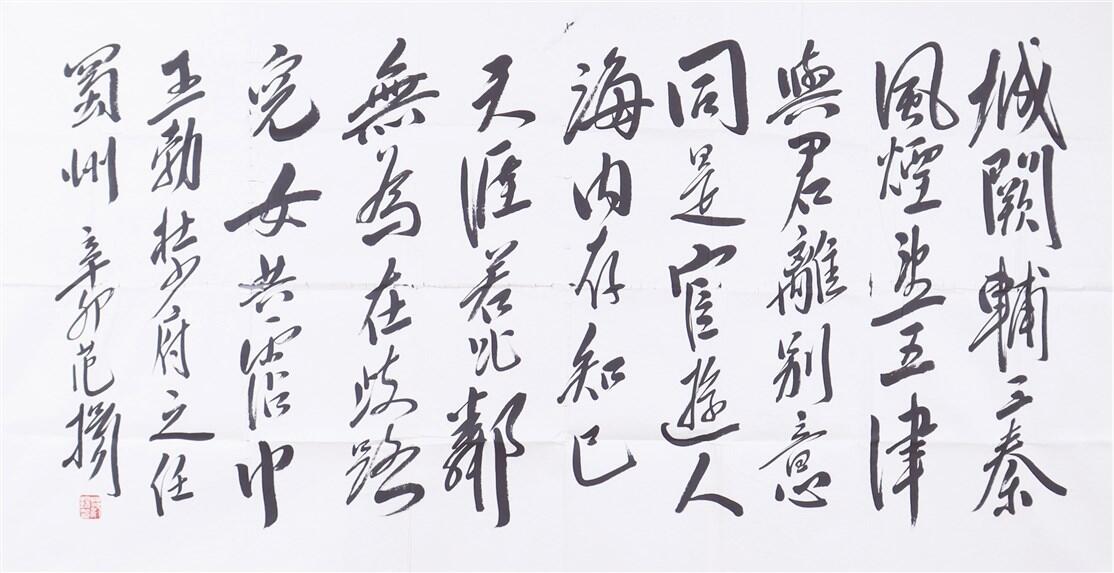 城闕輔三秦
風煙望五津
與君離別意
同是宦遊人
海内存知己
天涯若比鄰
無為在歧路
兒女共霑巾
王勃杜少府之任
蜀州 辛卯范